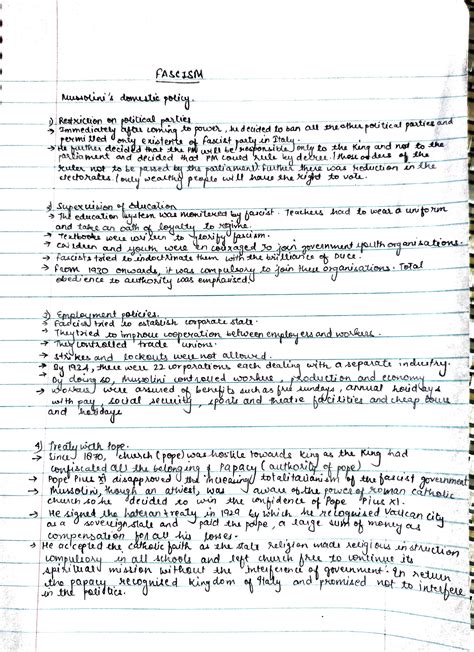 FASCISM
Mussolini's domestic policy.
1) Restriction on political parties
→ Immediately after coming to power, he decided to ban all the other political parties and
permitted only existence of fascist party in Italy.
→ He further decided that the PM will be responsible only to the King and not to the
parliament and decided that PM could rule by degree. Those orders of the
ruler not to be passed by the parliament. Further there was reduction in the
electorates (only wealthy people will have the right to vote.
2) Supervision of Education
→ The education system was monitered by fascist. Teachers had to wear a uniform
and take an oath of loyalty to regime.
→ Textbooks were written to glorify fascism.
→ Children and youth were encouraged to join government youth organisations.
→ Fascists tried to indoctrinate them with the brilliance of Duce.
→ From 1930 onwards, it was compulsory to join these organisations. Total
obedience to authority was emphasised.
3) Employment policies.
→ Fascist tried to establish corporate state.
→ They tried to improve cooperation between employers and workers.
→ They controlled trade unions.
→ Strikes and lockouts were not allowed.
→ By 1924, there were 22 corporations each dealing with a separate industry.
By doing so, Musolini controlled workers, production and economy
→ Workers were assured of benefits such as free sundays, annual holidays
with pay, social security, sports and theatre facilities and cheap tours
and holidays
4) Treaty with Pope.
→ Since 1870, church (pope) was hostile towards King as the King had
confiscated all the belonging of Papacy (authority of pope)
→ Pope Pius XI disapproved the increasing totalitarianism of the fascist government
→ Mussolini, though an athiest, was aware of the power of roman catholic
church so he decided to win the confidence of Pope Pius XI.
→ He signed the lateran treaty in 1929 by which he recognised Vatican city
as a sovereign state and paid the pope, a large sum of money as
compensation for all his losses.
→ He accepted the catholic faith as the state religion made religious instruction
compulsory in all schools and left church free to continue its
spiritual mission without the interference of government. In return
the papacy recognised Kingdom of Italy and promised not to interfere
in the politics.